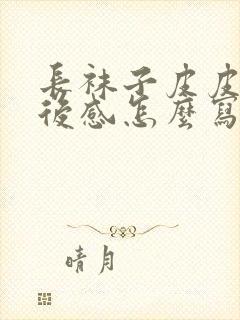 長袜子皮皮
後感怎麼寫
晴月